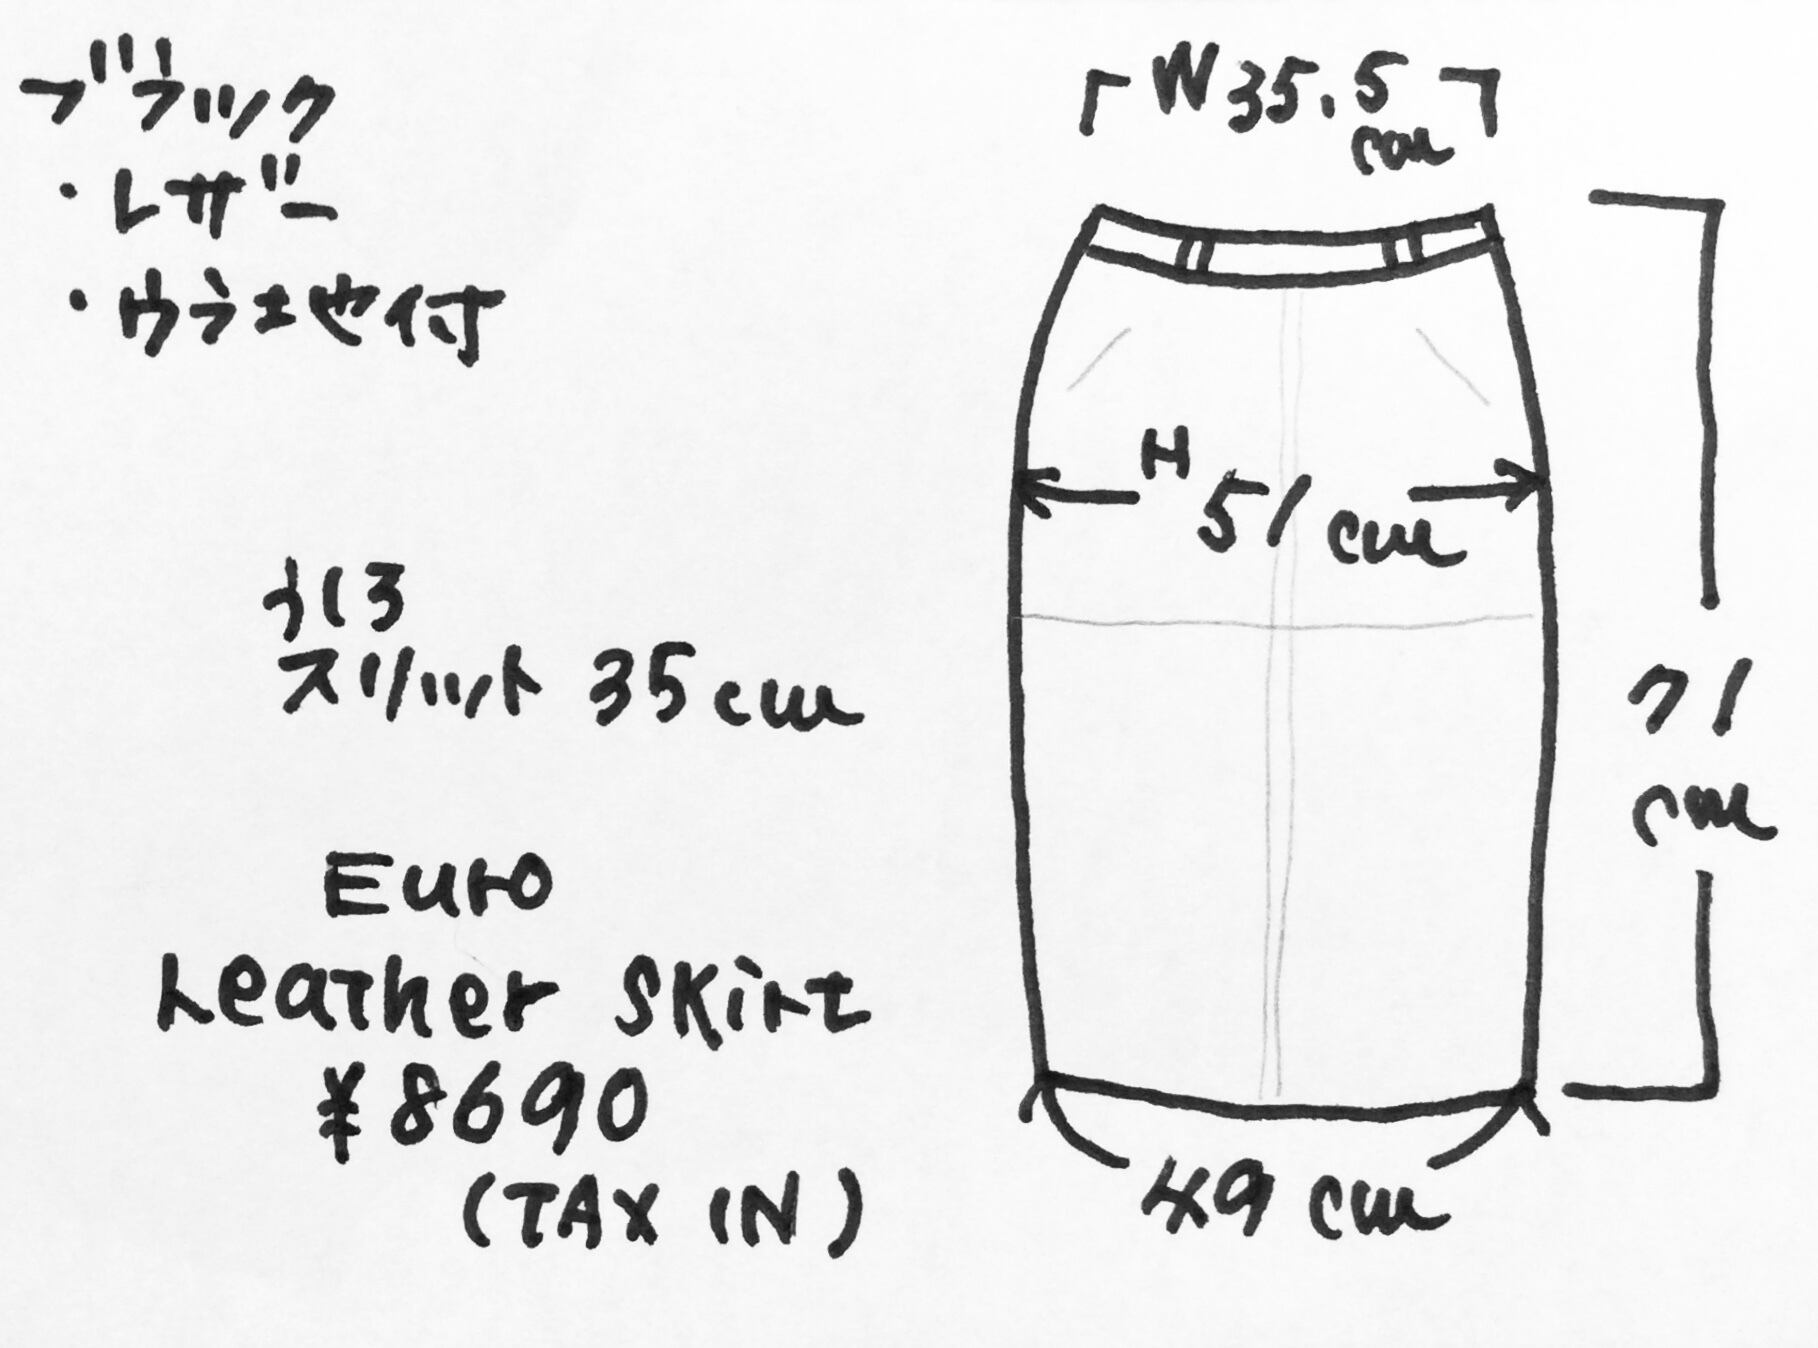 ブラック
・レザー
・ウラ地付
うしろ
スリット 35cm
Euro
Leather Skirt
¥8690
(TAX IN)
W35.5
cm
H
51cm
71
cm
49cm